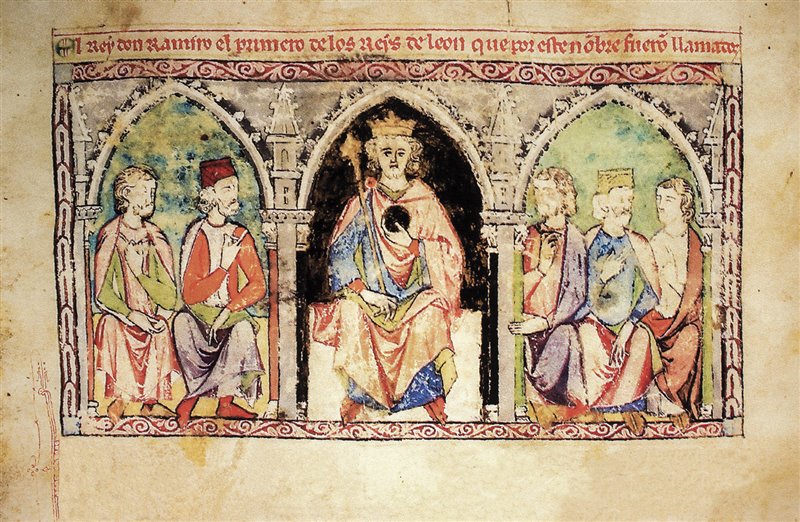 El Rey don Ramiro el primero de los Reys de leon que por este nõbre fuerõ llamados